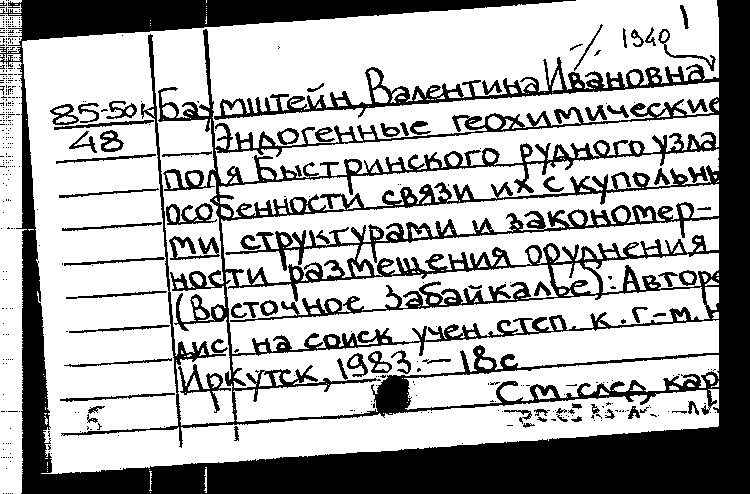 1
1940
85-50к Баумштейн, Валентина Ивановна
48 Эндогенные геохимические
поля Быстринского рудного узла
особенности связи их с купольны
ми структурами и закономер-
ности размещения оруднения
(Восточное Забайкалье): Авторе
дис. на соиск учен. степ. к.г.-м. н
Иркутск, 1983.- 18с
См. след. кар
Б